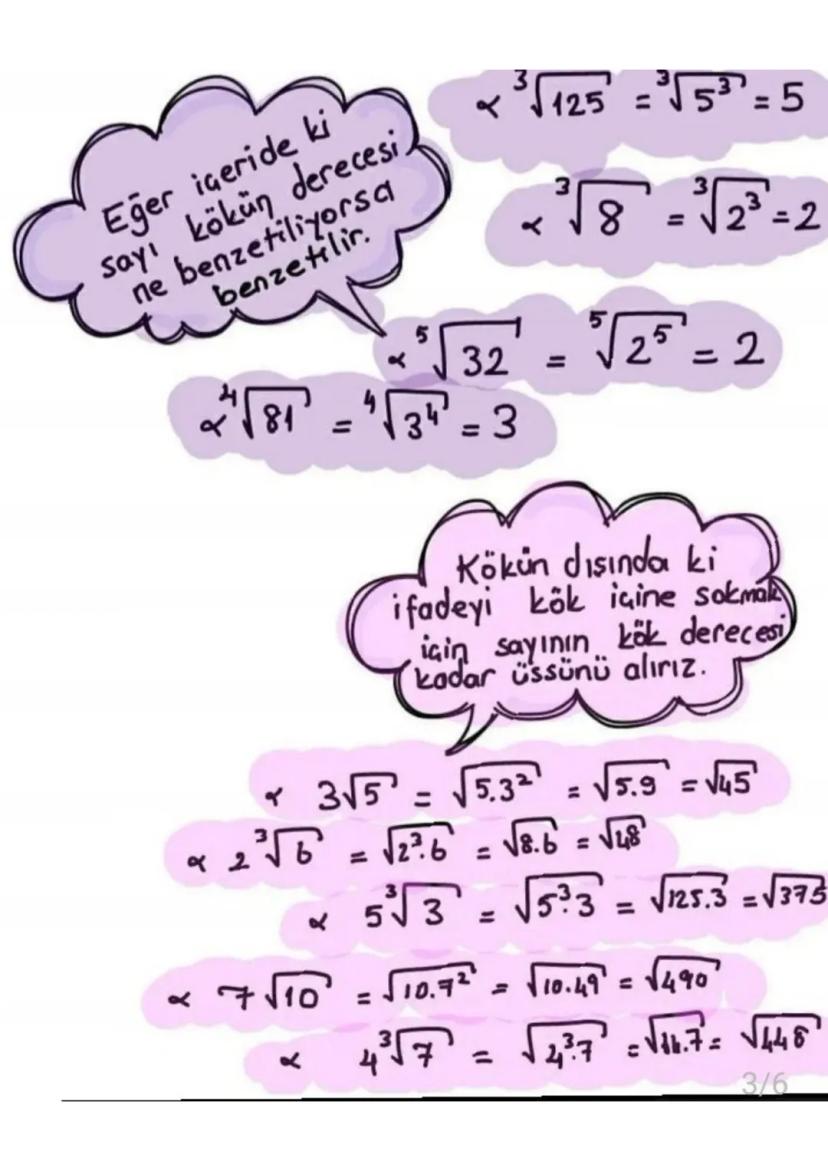 ∝ ³√125 = ³√5³ = 5
Eğer içeride ki
sayı kökün derecesi
ne benzetiliyorsa
benzetilir.
∝ ³√8 = ³√2³ = 2
∝ ⁵√32 = ⁵√2⁵ = 2
∝ ⁴√81 = ⁴√3⁴ = 3
Kökün dışında ki
ifadeyi kök içine sokmak
için sayının kök derecesi
kadar üssünü alırız.
∝ 3√5 = √5.3² = √5.9 = √45
∝ 2³√6 = √2³.6 = √8.6 = √48
∝ 5³√3 = √5³.3 = √125.3 = √375
∝ 7√10 = √10.7² = √10.49 = √490
∝ 4³√7 = √4³.7 = .7 = √448
3/6